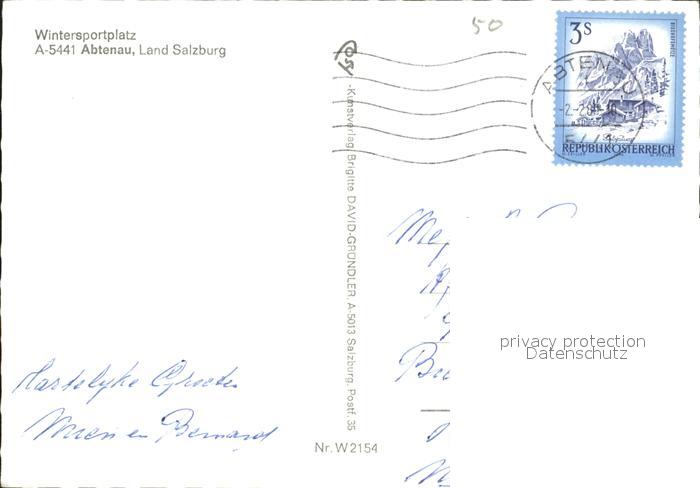 Wintersportplatz
A-5441 Abtenau, Land Salzburg
50
3S
REPUBLIK ÖSTERREICH
ABTEN
-Kunstverlag Brigitte DAVID-GRÜNDLER, A-5013 Salzburg, Postf. 35
Nr. W 2154
privacy protection
Datenschutz
Hartelijke Groeten
en Bernard